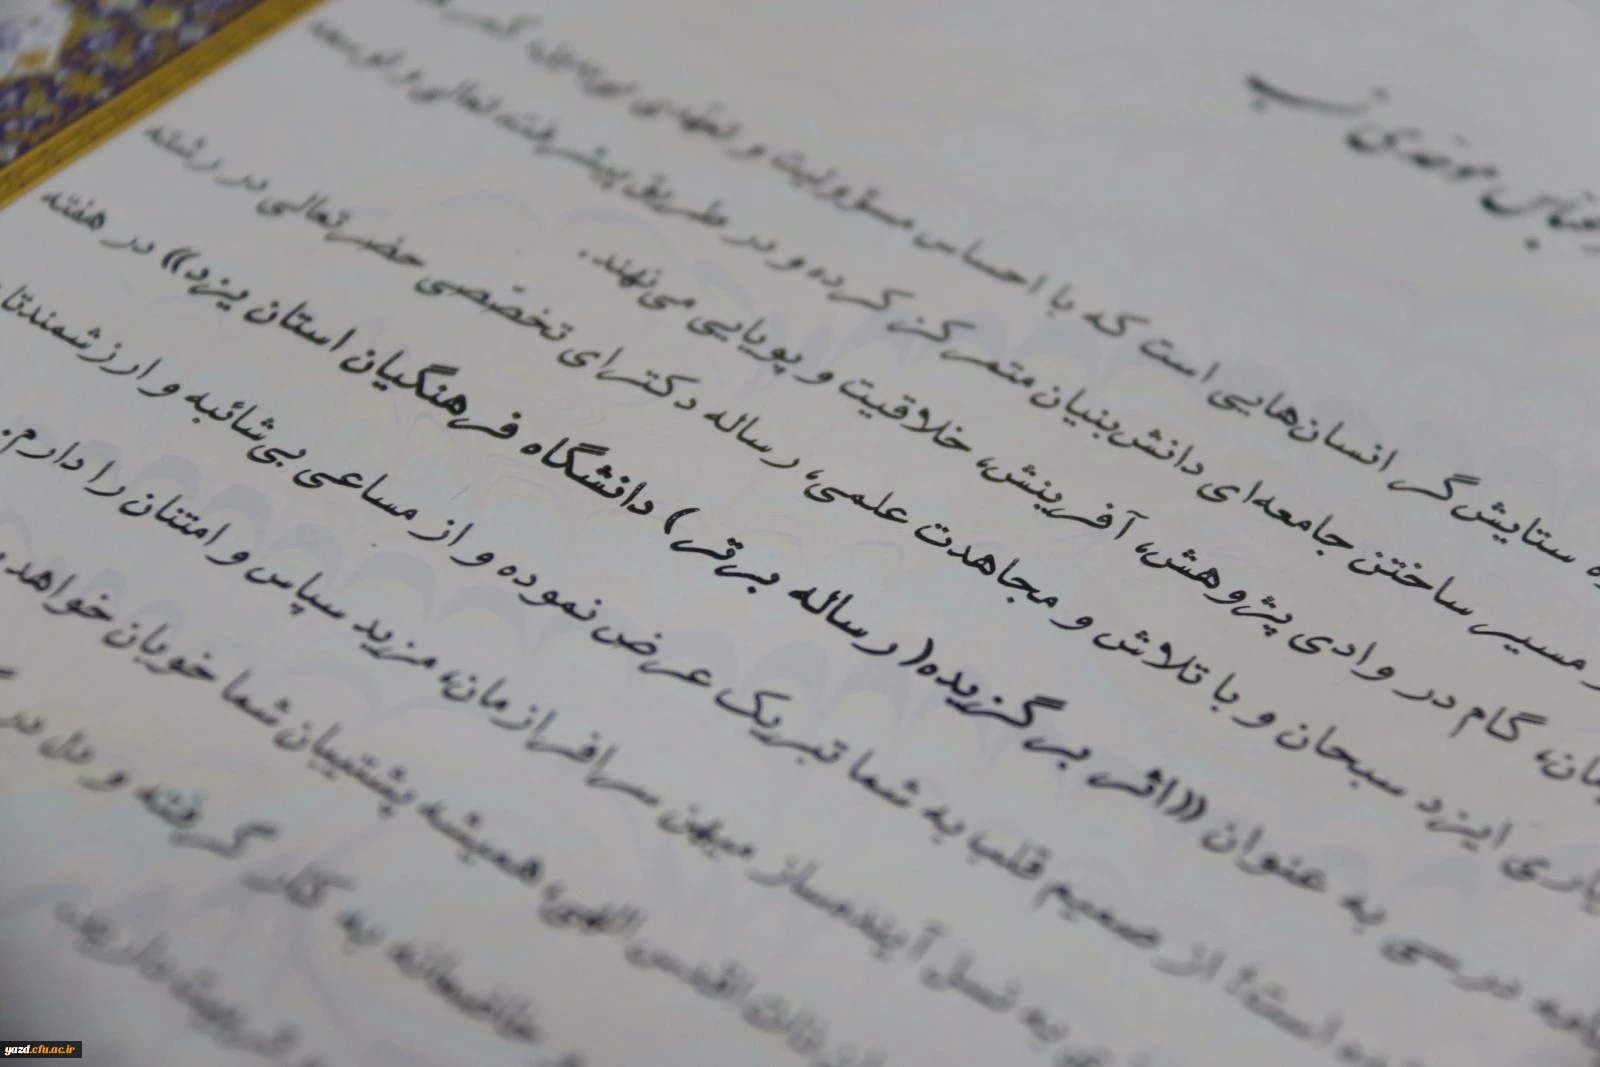 عباس موحدی نسب
ستایش‌گر انسان‌هایی است که با احساس مسؤولیت و تعهدی
مسیر ساختن جامعه‌ای دانش‌بنیان متمرکز کرده و در طریق پیشرفت، تعالی و توسعه
گام در وادی پژوهش، آفرینش، خلاقیت و پویایی می‌نهند.
یاری ایزد سبحان و با تلاش و مجاهدت علمی، رساله دکترای تخصّصی حضرتعالی در رشته
درسی به عنوان ((اثر برگزیده( رساله برتر) دانشگاه فرهنگیان استان یزد)) در هفته
است؛ از صمیم قلب به شما تبریک عرض نموده و از مساعی بی‌شائبه و ارزشمندتان
به نسل آینده‌ساز میهن سرافرازمان، مزید سپاس و امتنان را دارم.
ذات اقدس الهی، همیشه پشتیبان شما خوبان خواهد
به کار گرفته و دل در
yazd.cfu.ac.ir